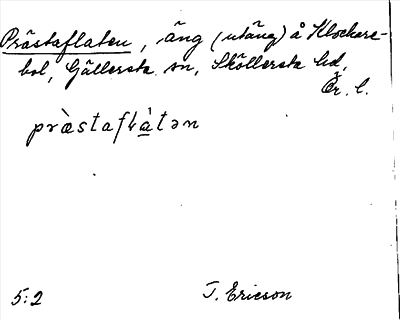 Prästaflaten, äng (utäng) å Klockare-
bol, Gällersta sn, Sköllersta hd,
Ör. l.
pràstaflàtən
5:2
T. Ericson